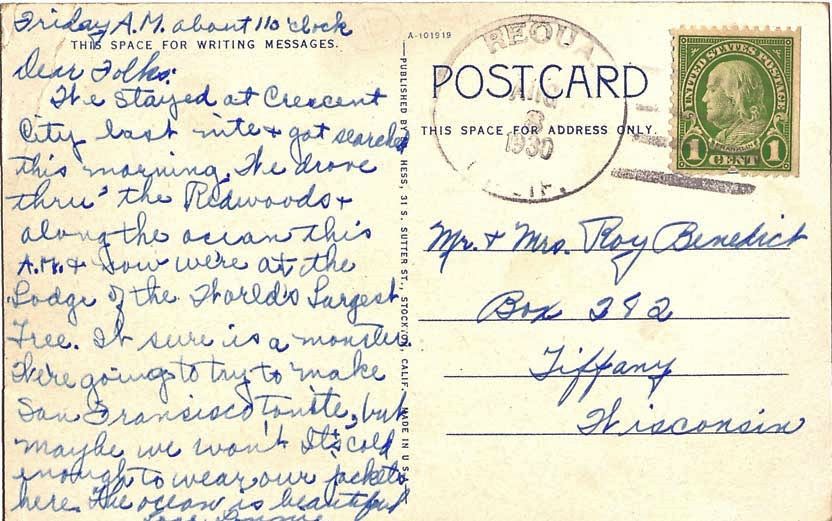 Friday A.M. about 11 o'clock
THIS SPACE FOR WRITING MESSAGES.
Dear Folks:
We stayed at Crescent
City last nite & got searched
this morning. We drove
thru' the Redwoods &
along the ocean this
A.M. & now we're at the
Lodge of the World's Largest
Tree. It sure is a monster
We're going to try to make
San Fransisco tonite, but
maybe we won't. It's cold
enough to wear our jackets
here. The ocean is beautiful
Love
A-101919
PUBLISHED BY HESS, 31 S. SUTTER ST., STOCKTON, CALIF. MADE IN U.S.
REQUA
AUG
8
1930
CALIF.
POST CARD
THIS SPACE FOR ADDRESS ONLY.
UNITED STATES POSTAGE
FRANKLIN
1 CENT 1
Mr. & Mrs. Roy Benedict
Box 282
Tiffany
Wisconsin